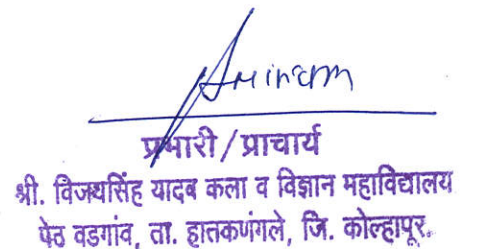 प्रभारी / प्राचार्य
श्री. विजयसिंह यादव कला व विज्ञान महाविद्यालय
पेठ वडगांव, ता. हातकणंगले, जि. कोल्हापूर.